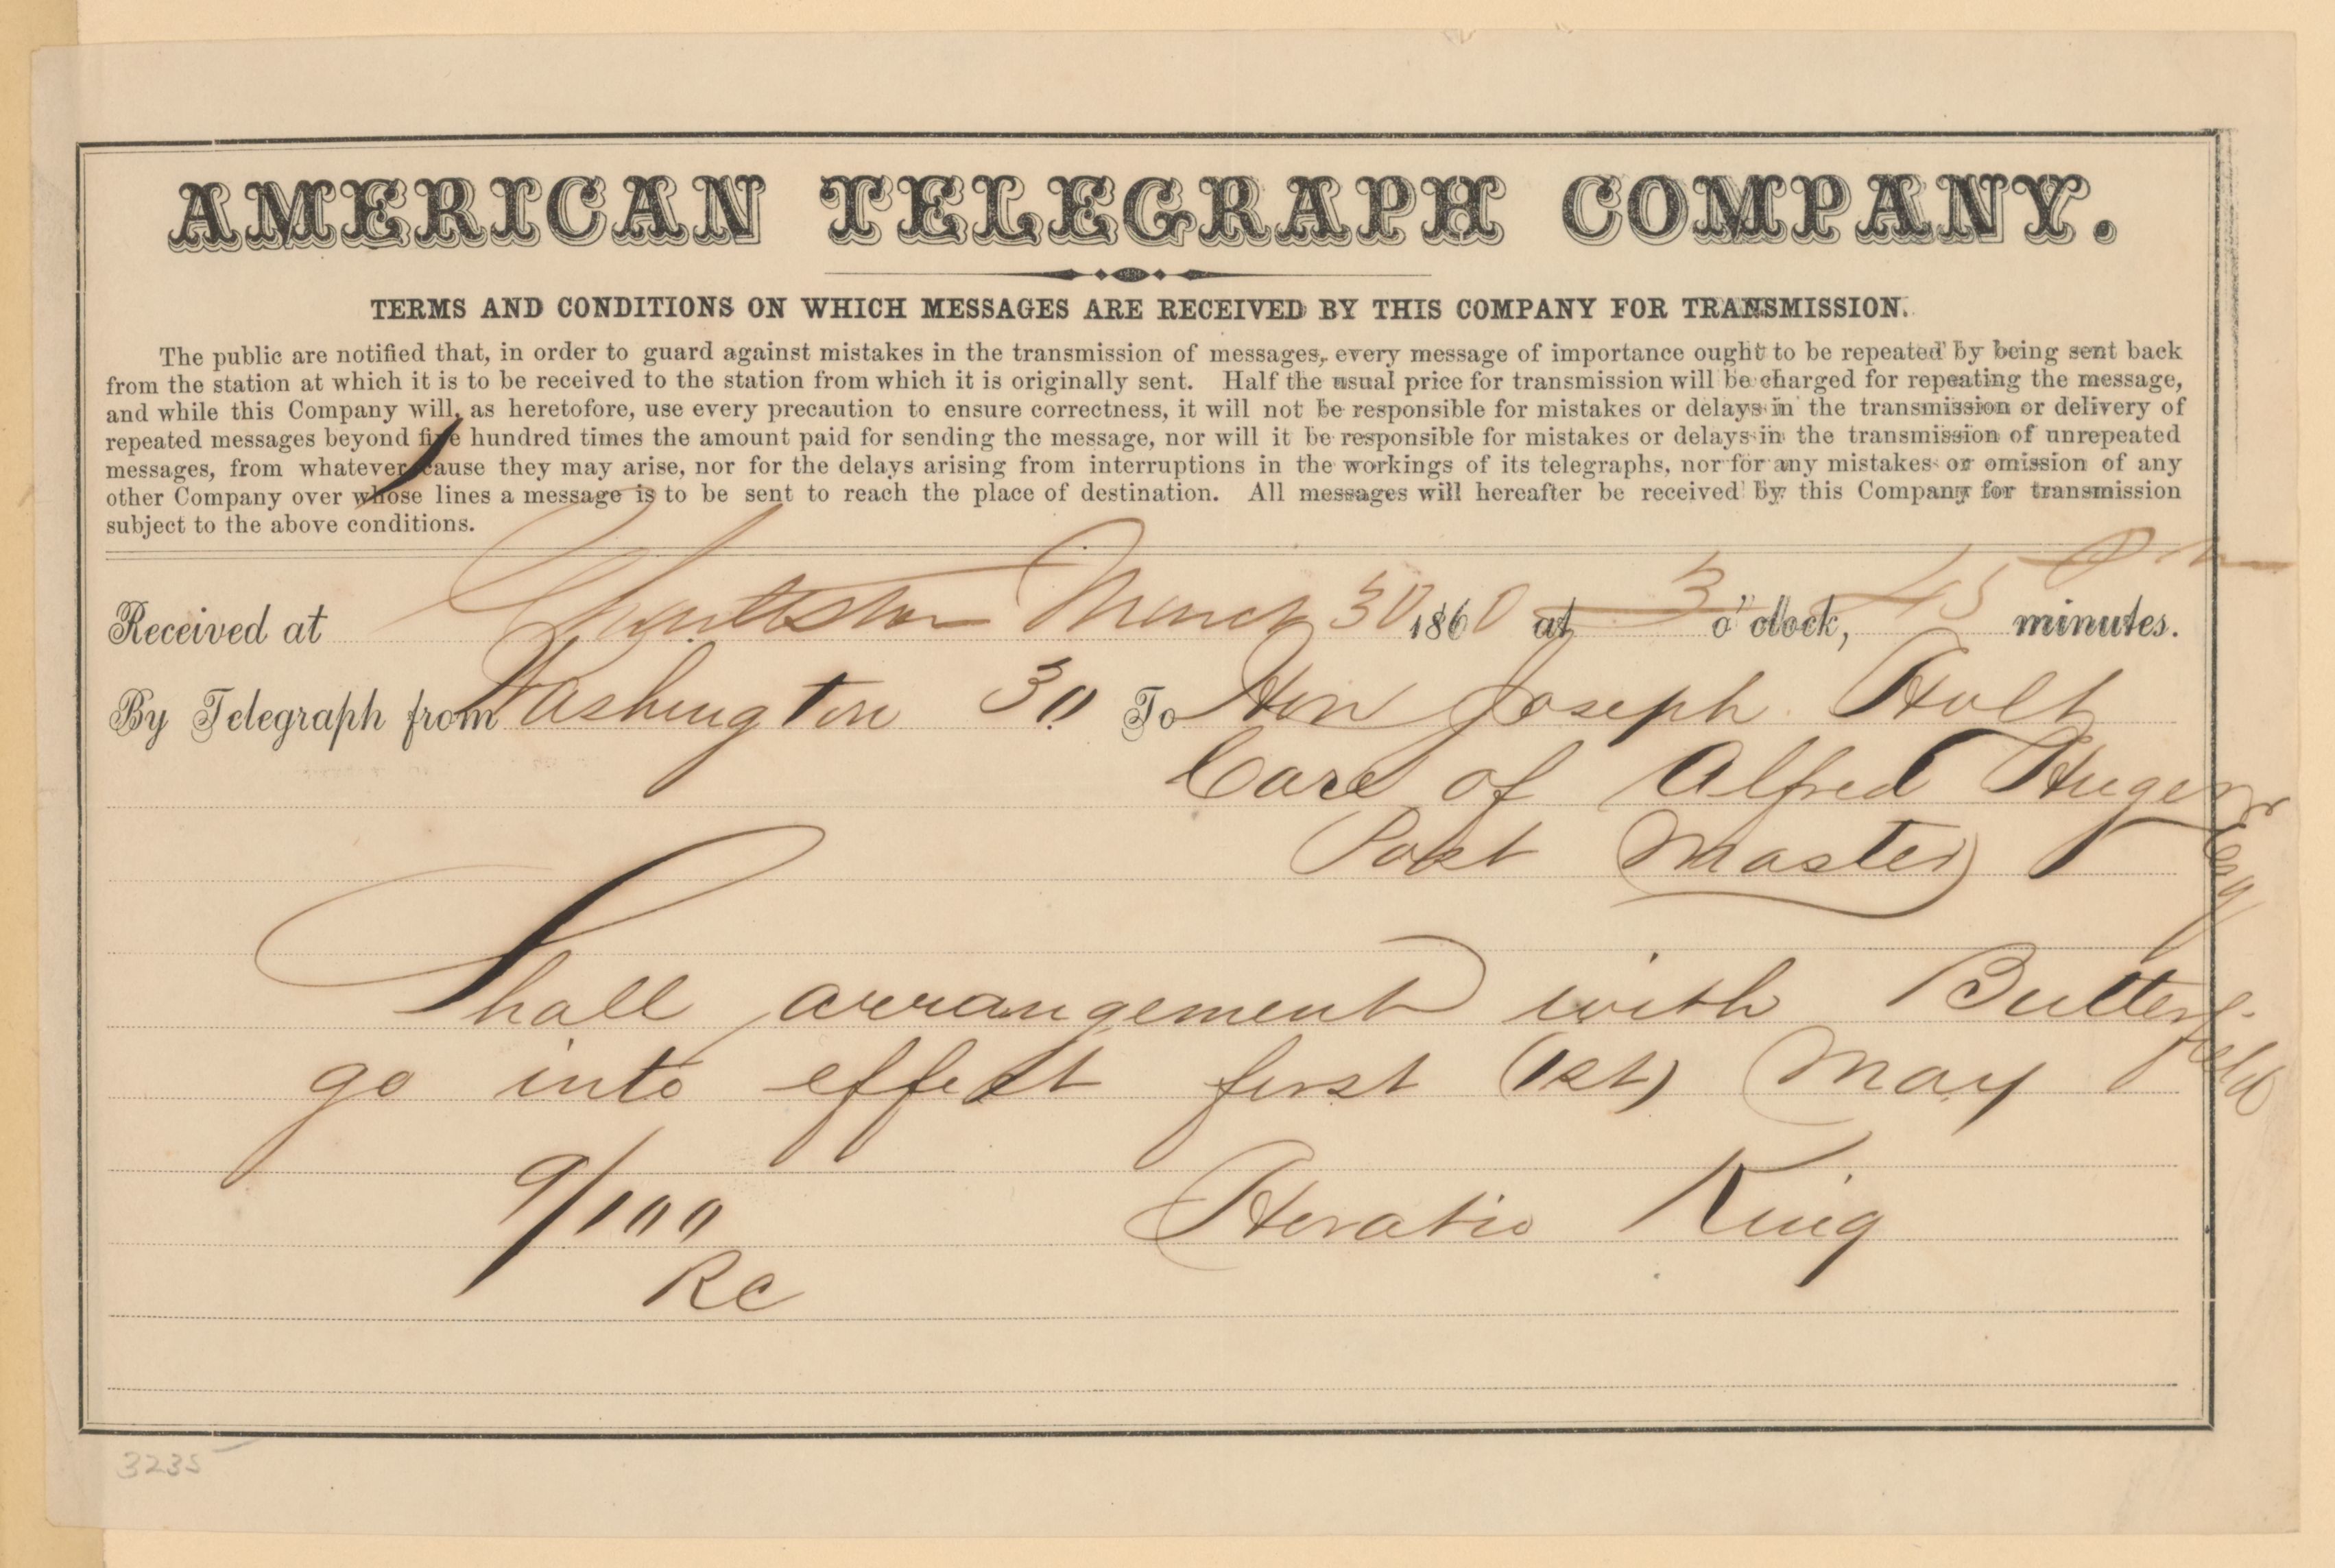 AMERICAN TELEGRAPH COMPANY.
TERMS AND CONDITIONS ON WHICH MESSAGES ARE RECEIVED BY THIS COMPANY FOR TRANSMISSION.
The public are notified that, in order to guard against mistakes in the transmission of messages, every message of importance ought to be repeated by being sent back
from the station at which it is to be received to the station from which it is originally sent. Half the usual price for transmission will be charged for repeating the message,
and while this Company will, as heretofore, use every precaution to ensure correctness, it will not be responsible for mistakes or delays in the transmission or delivery of
repeated messages beyond five hundred times the amount paid for sending the message, nor will it be responsible for mistakes or delays in the transmission of unrepeated
messages, from whatever cause they may arise, nor for the delays arising from interruptions in the workings of its telegraphs, nor for any mistakes or omission of any
other Company over whose lines a message is to be sent to reach the place of destination. All messages will hereafter be received by this Company for transmission
subject to the above conditions.
Received at Charleston March 30 1860 at 3 o'clock, 45 minutes. Pm
By Telegraph from Washington 30 To Hon Joseph Holt
Care of Alfred Huger Esq
Post Master
Shall arrangement with Butterfield
go into effect first (1st) May
9/100 Horatio King
Rc
3235